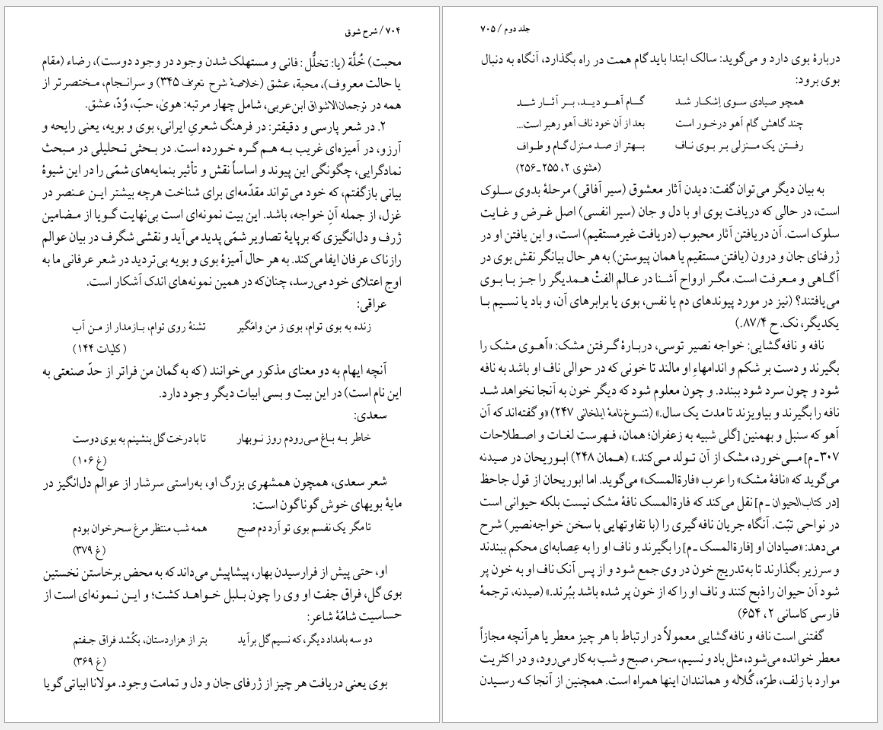 ۷۰۴ / شرح شوق
محبت) خُلَّة (یا: تخلُّل: فانی و مستهلک شدن وجود در وجود دوست)، رضاء (مقام
یا حالت معروف)، محبة، عشق (خلاصهٔ شرح تعرف ۳۴۵) و سرانجام، مختصرتر از
همه در ترجمان‌الاشواق ابن‌عربی، شامل چهار مرتبه: هویٰ، حبّ، وُدّ، عشق.
۲. در شعر پارسی و دقیقتر: در فرهنگ شعریِ ایرانی، بوی و بویه، یعنی رایحه و
آرزو، در آمیزه‌ای غریب به هم گره خورده است. در بحثی تحلیلی در مبحث
نمادگرایی، چگونگی این پیوند و اساساً نقش و تأثیر بنمایه‌های شمّی را در این شیوهٔ
بیانی بازگفتم، که خود می‌تواند مقدّمه‌ای برای شناخت هرچه بیشتر این عنصر در
غزل، از جمله آنِ خواجه، باشد. این بیت نمونه‌ای است بی‌نهایت گویا از مضامین
ژرف و دل‌انگیزی که بر پایهٔ تصاویر شمّی پدید می‌آید و نقشی شگرف در بیان عوالم
رازناک عرفان ایفا می‌کند. به هر حال آمیزهٔ بوی و بویه بی‌تردید در شعر عرفانی ما به
اوج اعتلای خود می‌رسد، چنان‌که در همین نمونه‌های اندک آشکار است.
عراقی:
زنده به بوی توام، بوی ز من وامگیر تشنهٔ روی توام، بازمدار از من آب
(کلیات ۱۴۴)
آنچه ایهام به دو معنای مذکور می‌خوانند (که به گمان من فراتر از حدّ صنعتی به
این نام است) در این بیت و بسی ابیات دیگر وجود دارد.
سعدی:
خاطر به باغ می‌رودم روز نوبهار تا با درخت گل بنشینم به بوی دوست
(غ ۱۰۶)
شعر سعدی، همچون همشهری بزرگ او، به‌راستی سرشار از عوالم دل‌انگیز در
مایهٔ بویهای خوش گوناگون است:
تا مگر یک نفسم بوی تو آرد دم صبح همه شب منتظر مرغ سحرخوان بودم
(غ ۳۷۹)
او، حتی پیش از فرارسیدن بهار، پیشاپیش می‌داند که به محض برخاستن نخستین
بوی گل، فراق جفت او وی را چون بلبل خواهد کشت؛ و این نمونه‌ای است از
حساسیت شامّهٔ شاعر:
دو سه بامداد دیگر، که نسیم گل برآید بتر از هزاردستان، بکُشد فراق جفتم
(غ ۳۶۹)
بوی یعنی دریافت هر چیز از ژرفای جان و دل و تمامت وجود. مولانا ابیاتی گویا
جلد دوم / ۷۰۵
دربارهٔ بوی دارد و می‌گوید: سالک ابتدا باید گام همت در راه بگذارد، آنگاه به دنبال
بوی برود:
همچو صیادی سوی اِشکار شد گام آهو دید، بر آثار شد
چند گاهش گام آهو درخور است بعد از آن خود ناف آهو رهبر است...
رفتن یک منزلی بر بوی ناف بهتر از صد منزل گام و طواف
(مثنوی ۲، ۲۵۵ـ۲۵۶)
به بیان دیگر می‌توان گفت: دیدن آثار معشوق (سیر آفاقی) مرحلهٔ بدوی سلوک
است، در حالی که دریافت بوی او با دل و جان (سیر انفسی) اصل غرض و غایت
سلوک است. آن دریافتن آثار محبوب (دریافت غیرمستقیم) است، و این یافتن او در
ژرفنای جان و درون (یافتن مستقیم یا همان پیوستن) به هر حال بیانگر نقش بوی در
آگاهی و معرفت است. مگر ارواح آشنا در عالم الفتْ همدیگر را جز با بوی
می‌یافتند؟ (نیز در مورد پیوندهای دم یا نفس، بوی یا برابرهای آن، و باد یا نسیم با
یکدیگر، نک. ح ۸۷/۴.)
نافه و نافه‌گشایی: خواجه نصیر توسی، دربارهٔ گرفتن مشک: «آهوی مشک را
بگیرند و دست بر شکم و اندامهاءِ او مالند تا خونی که در حوالی ناف او باشد به نافه
شود و چون سرد شود ببندد. و چون معلوم شود که دیگر خون به آنجا نخواهد شد
نافه را بگیرند و بیاویزند تا مدت یک سال.» (تنسوخ‌نامهٔ ایلخانی ۲۴۷) «و گفته‌اند که آن
آهو که سنبل و بهمنین [گلی شبیه به زعفران؛ همان، فهرست لغات و اصطلاحات
۳۰۷ـ م] می‌خورد، مشک از آن تولد می‌کند.» (همان ۲۴۸) ابوریحان در صیدنه
می‌گوید که «نافهٔ مشک» را عرب «فارةالمسک» می‌گوید. اما ابوریحان از قول جاحظ
[در کتاب‌الحیوان ـ م] نقل می‌کند که فارةالمسک نافهٔ مشک نیست بلکه حیوانی است
در نواحی تبّت. آنگاه جریان نافه‌گیری را (با تفاوتهایی با سخن خواجه‌نصیر) شرح
می‌دهد: «صیادان او [فارةالمسک ـ م] را بگیرند و ناف او را به عِصابه‌ای محکم ببندند
و سرزیر بگذارند تا به‌تدریج خون در وی جمع شود و از پس آنک ناف او به خون پر
شود آن حیوان را ذبح کنند و ناف او را که از خون پر شده باشد ببُرند.» (صیدنه، ترجمهٔ
فارسی کاسانی ۲، ۶۵۴)
گفتنی است نافه و نافه‌گشایی معمولاً در ارتباط با هر چیز معطر یا هرآنچه مجازاً
معطر خوانده می‌شود، مثل باد و نسیم، سحر، صبح و شب به کار می‌رود، و در اکثریت
موارد با زلف، طرّه، گُلاله و همانندان اینها همراه است. همچنین از آنجا که رسیدن